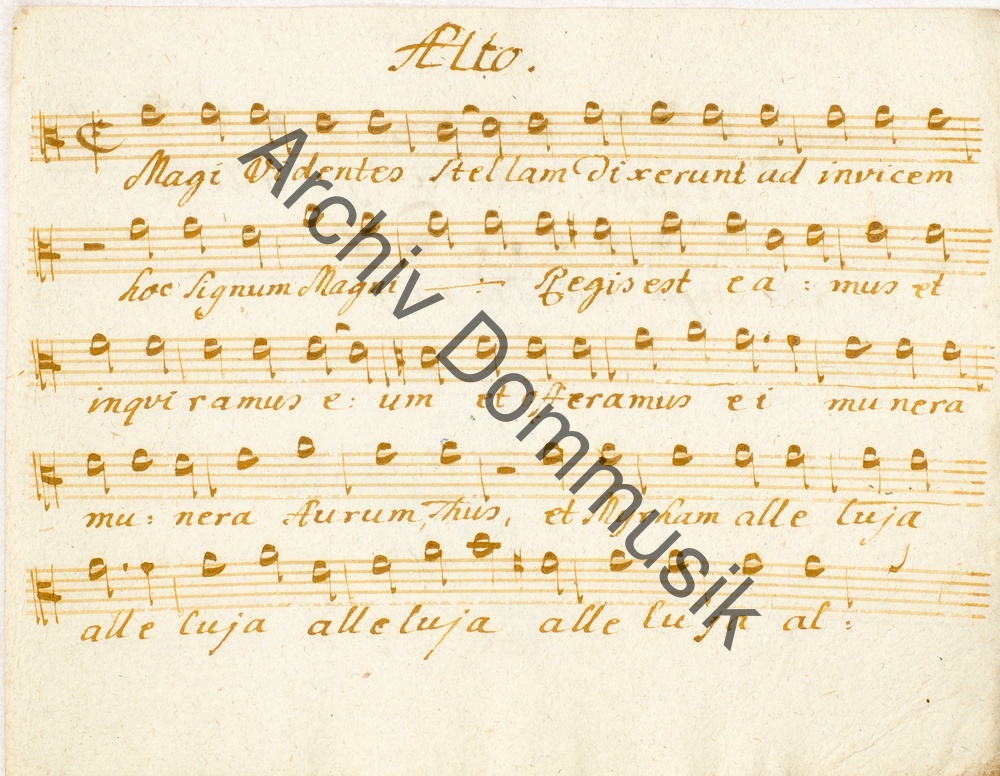 Alto.
Magi Videntes stellam dixerunt ad invicem
hoc signum Magni Regis est e a : mus et
inqui ramus e : um et offeramus e i munera
mu : nera Aurum, Thus, et Myrrham alle luja
alle luja alleluja alle luja al :
Archiv Dommusik